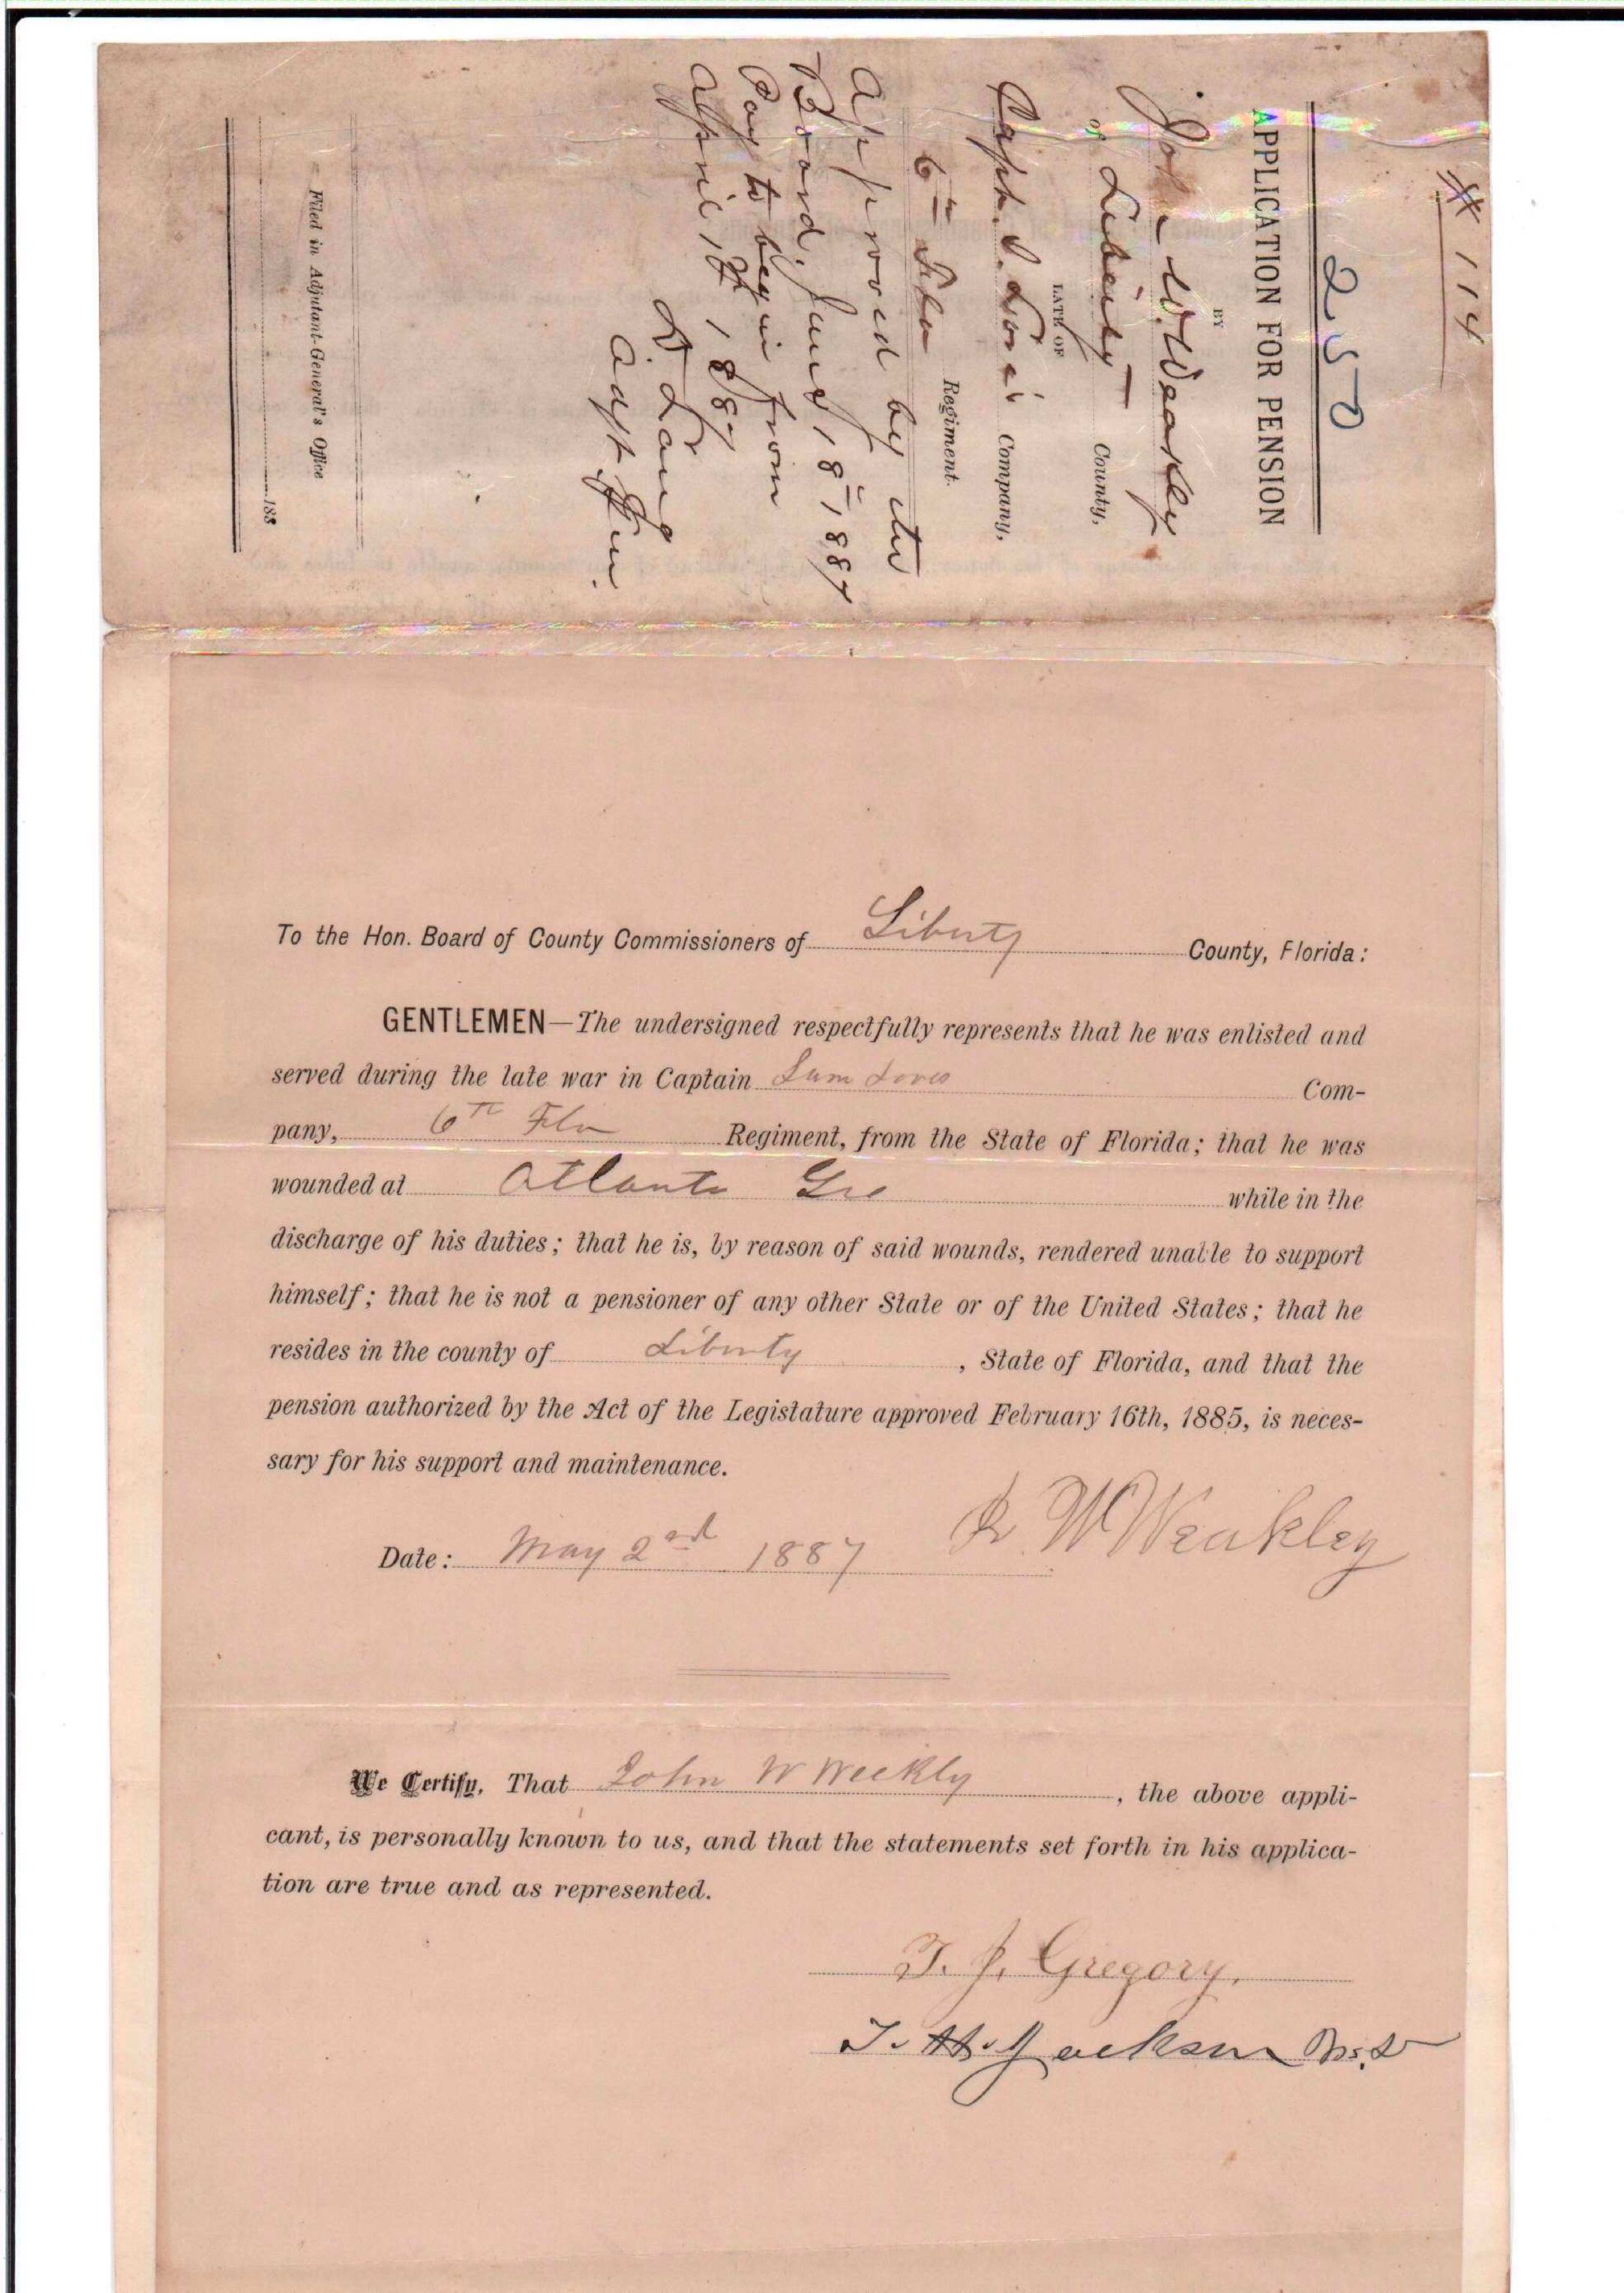 # 114
250
APPLICATION FOR PENSION
BY
John W. Weakley
of Liberty County,
LATE OF
Capt. S. Love's Company,
6th Fla Regiment.
Approved by the
Board, June 18th 1887
Pay to begin from
April 1st, 1887
D. Lang
Adjt Gen.
Filed in Adjutant-General's Office
188
To the Hon. Board of County Commissioners of Liberty County, Florida:
GENTLEMEN—The undersigned respectfully represents that he was enlisted and
served during the late war in Captain Sam Loves Com-
pany, 6th Fla Regiment, from the State of Florida; that he was
wounded at Atlanta while in the
discharge of his duties; that he is, by reason of said wounds, rendered unable to support
himself; that he is not a pensioner of any other State or of the United States; that he
resides in the county of Liberty, State of Florida, and that the
pension authorized by the Act of the Legistature approved February 16th, 1885, is neces-
sary for his support and maintenance.
Date: May 2nd 1887 W Weakley
We Certify, That John W Weekly, the above appli-
cant, is personally known to us, and that the statements set forth in his applica-
tion are true and as represented.
T. J. Gregory.
T. H. Jackson